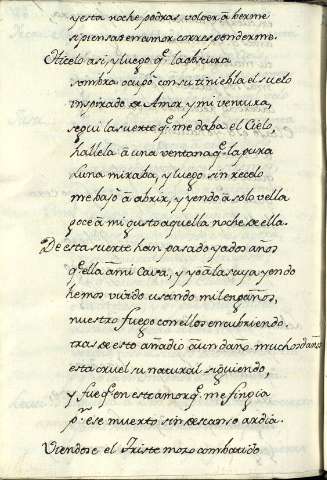 y esta noche podras volver à berme
si piensas en amor corresponderme.
Hicelo asi, y luego q̃ la obscura
sombra ocupò con su tiniebla el suelo
inspirado de Amor, y mi ventura,
segui la suerte q̃ me daba el Cielo,
hallela à una ventana q̃ la pura
Luna miraba, y luego sin recelo
me bajò à abrir, y yendo à solo vella
goce à mi gusto aquella noche de ella.
De esta suerte han pasado ya dos años
q̃ ella à mi Casa, y yo à la suya yendo
hemos vivido usando mil engaños,
nuestro fuego con ellos encubriendo.
tras de esto añadio à un daño muchos daños
esta cruel su natural siguiendo,
y fue q̃ en este amor q̃ me fingia
p.r ese muerto sin descanso ardia.
Viendose el triste mozo combatido